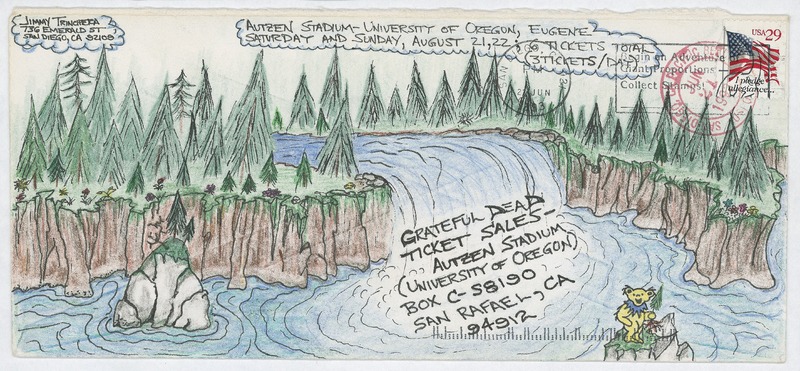 JIMMY TRINCHERA
736 EMERALD ST
SAN DIEGO, CA 92109
AUTZEN STADIUM-UNIVERSITY OF OREGON, EUGENE
SATURDAY AND SUNDAY, AUGUST 21,22; 6 TICKETS TOTAL
(3 TICKETS/DAY)
PM
JUN
an Adventure
Giant Proportions
Collect Stamps!
USA 29
I pledge
allegiance...
GRATEFUL DEAD
TICKET SALES-
AUTZEN STADIUM
(UNIVERSITY OF OREGON)
BOX C-S8190
SAN RAFAEL, CA
94912